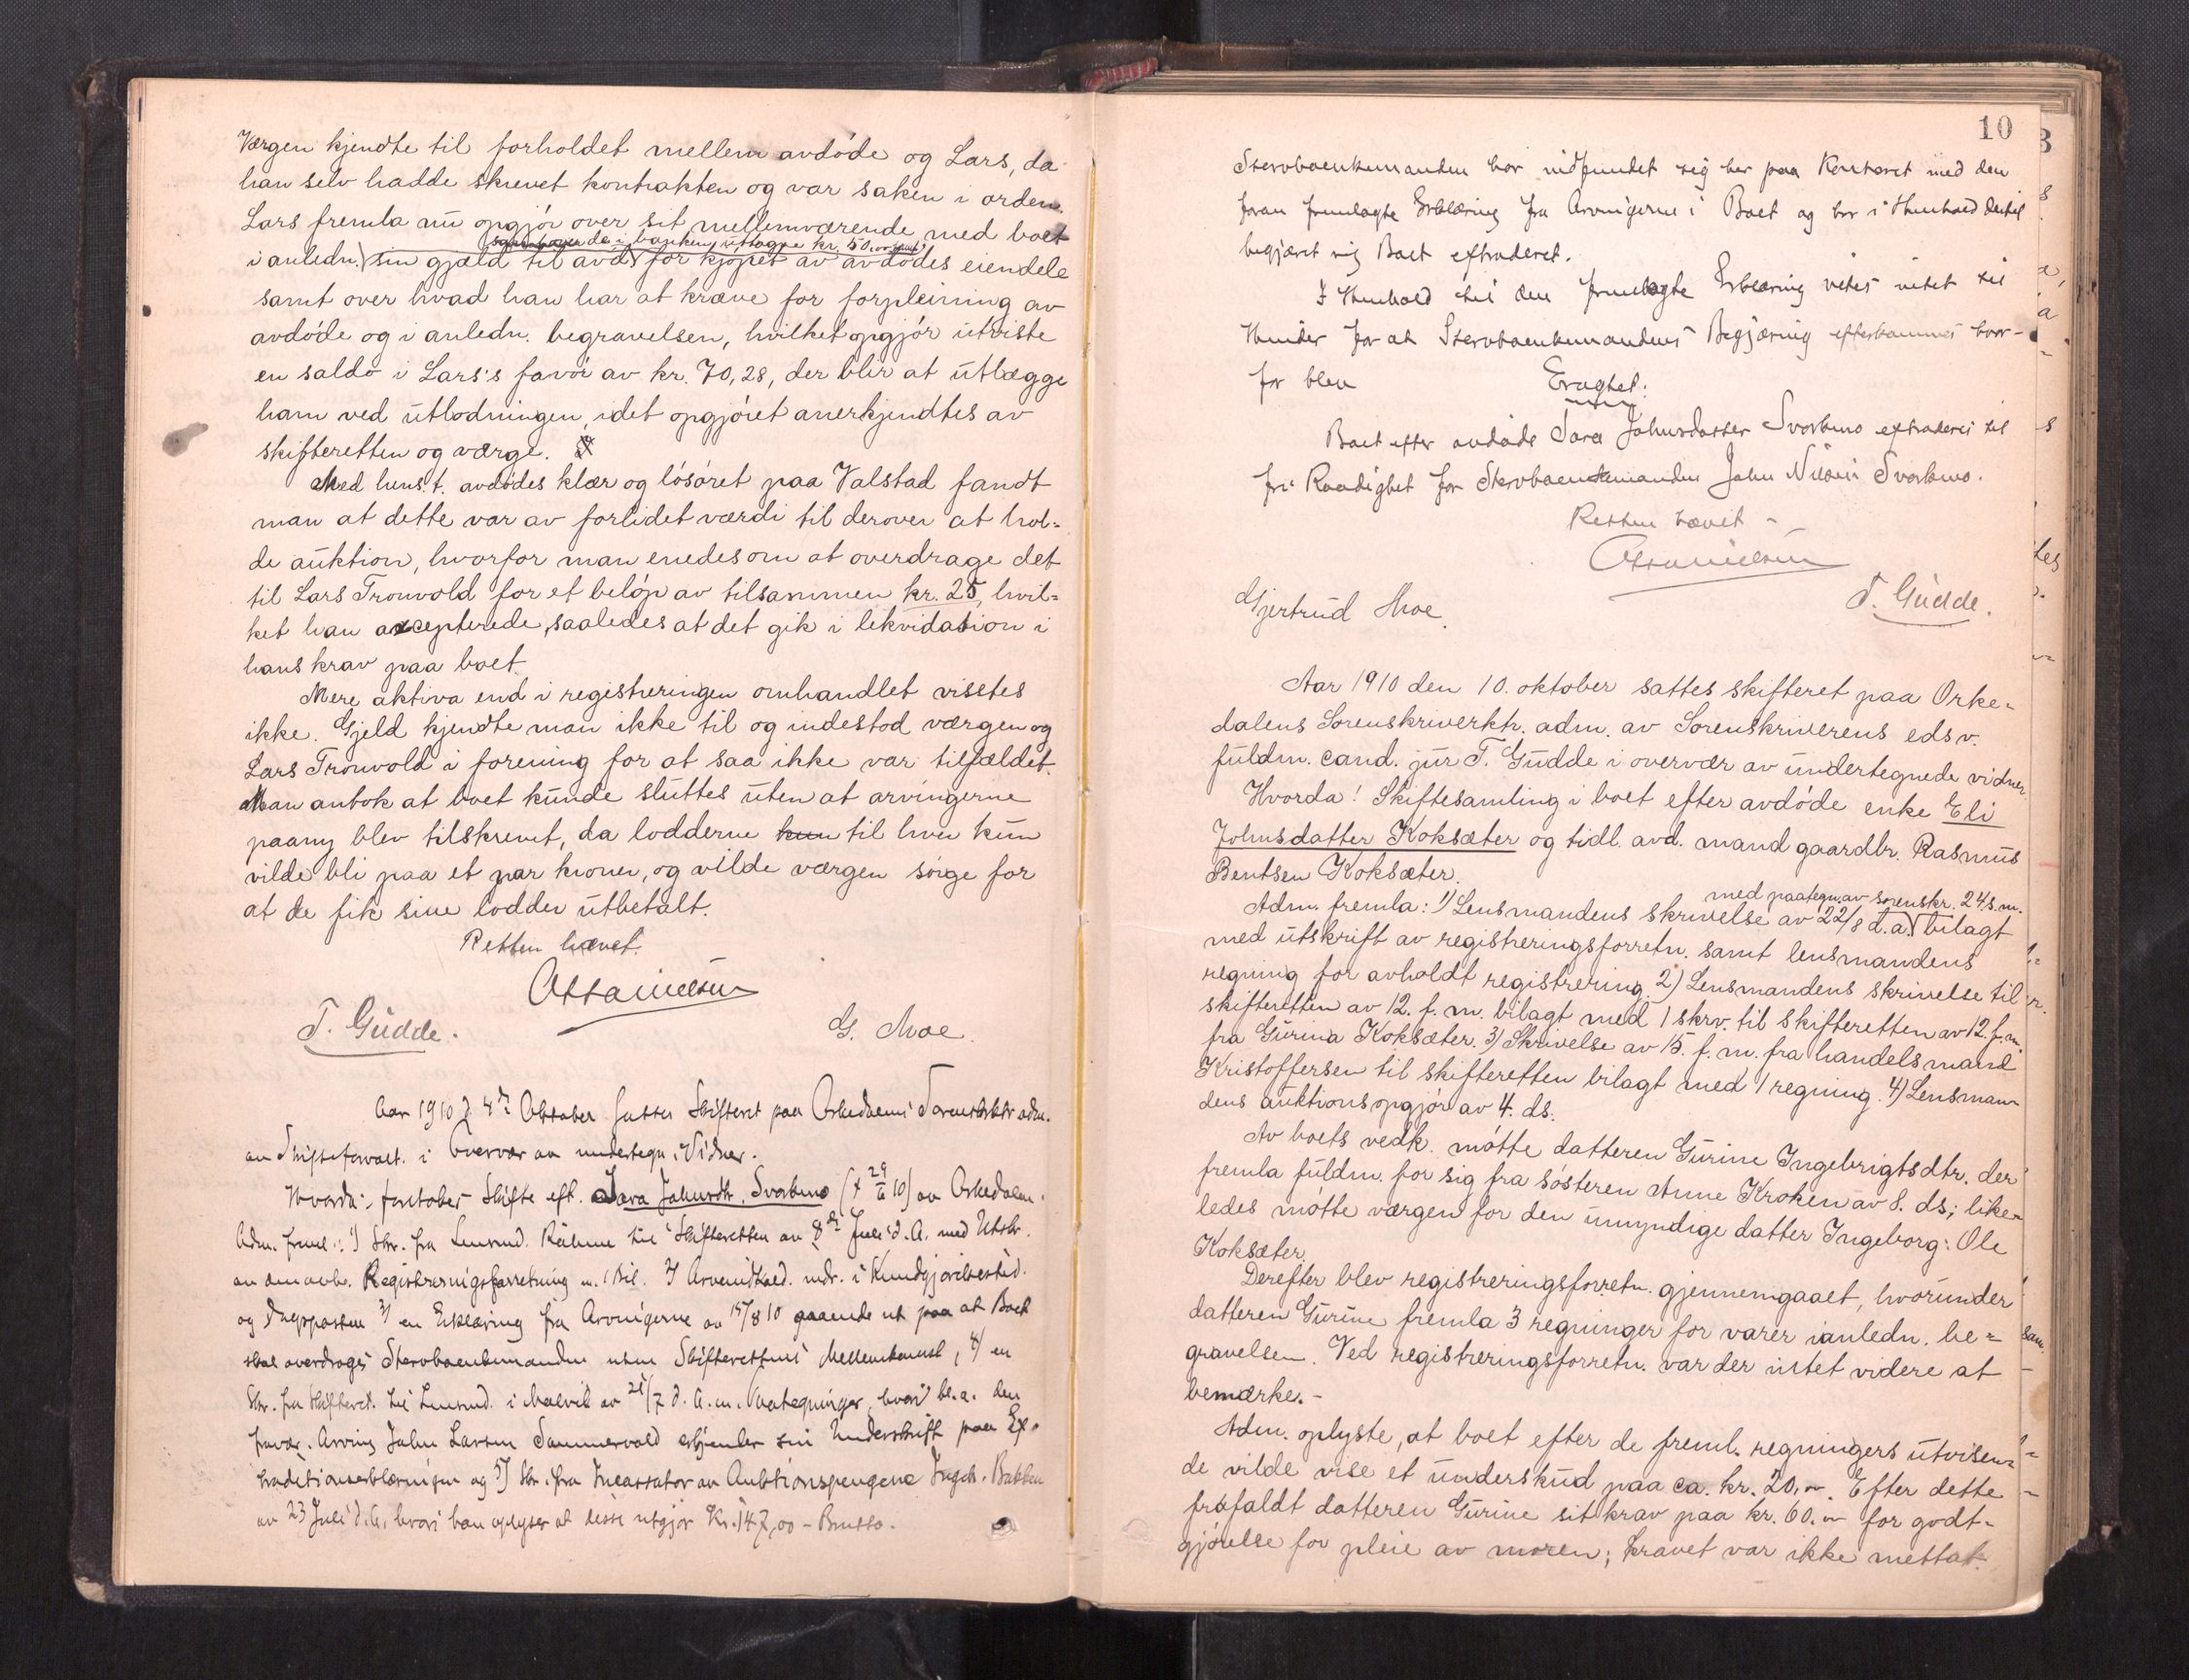 Værgen kjendte til forholdet mellem avdøde og Lars, da
han selv hadde skrevet kontrakten og var saken i orden.
Lars fremla nu opgjør over sit mellemværende med boet
i banken uttagne kr. 50,00
i anledn. sin gjæld til avd. for kjøpet av avdødes eiendele
samt over hvad han har at kræve for forpleining av
avdøde og i anledn. begravelsen, hvilket opgjør utviste
en saldo i Lars's favør av kr. 70,28, der blir at utlægge
ham ved utlodningen, idet opgjøret anerkjendtes av
skifteretten og værge.
Med hens. t. avdødes klær og løsøret paa Valstad fandt
man at dette var av forlidet værdi til derover at hol-
de auktion, hvorfor man enedes om at overdrage det
til Lars Tronvold for et beløp av tilsammen kr. 25, hvil-
ket han accepterede, saaledes at det gik i likvidation i
hans krav paa boet.
Mere aktiva end i registreringen omhandlet visstes
ikke. Gjeld kjendte man ikke til og indestod værgen og
Lars Tronvold i forening for at saa ikke var tilfældet.
Man antok at boet kunde sluttes uten at arvingerne
paany blev tilskrevet, da lodderne kun til hver kun
vilde bli paa et par kroner, og vilde værgen sørge for
at de fik sine lodder utbetalt.
Retten hævet.
T. Gudde. G. Moe.
Aar 1910 d. 4de Oktober sattes Skifteret paa Orkedalens Sorenskrktr. adm.
av Skifteforvalt. i Overvær av undertegn. Vidner.
Hvorda: foretokes Skifte eft. Sara Johnsdtr. Svorkmo († 29/6 10) av Orkedalen.
Adm. freml.: 1) Skr. fra Lensmd. til Skifteretten av 8de Juli d. A. med Utskr.
av Registreringsforretning m. 1 Bil. I
og Dagsposten 3) en Erklæring fra Arvingerne av 15/8 10 gaaende ut paa at Boet
skal overdrages Stervboenkemanden uten Skifterettens Mellemkomst, 4) en
Skr. fra Skifteret. til Lensmd. i Malvik av 25/7 d. A. m. Paategninger, hvori bl. a. den
fravær. Arving John Larsen erkjender sin Underskrift paa Ex-
traditionserklæringen og 5) Skr. fra Incassator av Auktionspengene Ingebr. Bakken
av 23 Juli d. A. hvori han oplyser at disse utgjør Kr. 147,00 – Brutto.
10
Stervboenkemanden har indfundet sig her paa Kontoret med den
foran fremlagte Erklæring fra Arvingerne i Boet og har i Henhold dertil
begjæret sig Boet extraderet.
I Henhold til den fremlagte Erklæring vites intet til
Hinder for at Stervboenkemandens Begjæring efterkommes hvor-
for blev Eragtet:
Boet efter avdøde Sara Johnsdatter Svorkmo extraderes til
fri Raadighet for Stervboenkemanden John Nilsen Svorkmo.
Retten hævet –
Gjertrud Moe. T. Gudde.
Aar 1910 den 10. oktober sattes skifteret paa Orke-
dalens Sorenskriverktr. adm. av Sorenskriverens edsv.
fuldm. cand. jur T. Gudde i overvær av undertegnede vidner.
Hvorda! Skiftesamling i boet efter avdøde enke Eli
Johnsdatter Koksæter og tidl. avd. mand gaardbr. Rasmus
Bentsen Koksæter.
med paategn. av sorenskr. 24. s. m.
Adm. fremla: 1) Lensmandens skrivelse av 22/8 d. a. bilagt
med utskrift av registreringsforretn. samt lensmandens
regning for avholdt registrering. 2) Lensmandens skrivelse til
skifteretten av 12. f. m. bilagt med 1 skrv. til skifteretten av 12. f. m.
fra Gurina Koksæter. 3) Skrivelse av 15. f. m. fra handelsmand
Kristoffersen til skifteretten bilagt med 1 regning. 4) Lensman-
dens auktionsopgjør av 4. ds.
Av boets vedk. møtte datteren Gurine Ingebrigtsdtr. der
fremla fuldm. for sig fra søsteren Anne Kroken av 8. ds; like-
ledes møtte værgen for den umyndige datter Ingeborg: Ole
Koksæter.
Derefter blev registreringsforretn. gjennemgaaet, hvorunder
datteren Gurine fremla 3 regninger for varer i anledn. be-
gravelsen. Ved registreringsforretn. var der intet videre at
bemærke. –
Adm. oplyste, at boet efter de freml. regningers utvisen-
de vilde vise et underskud paa ca. kr. 20,00. Efter dette
frafaldt datteren Gurine sit krav paa kr. 60.00 for godt-
gjørelse for pleie av moren; kravet var ikke mottat